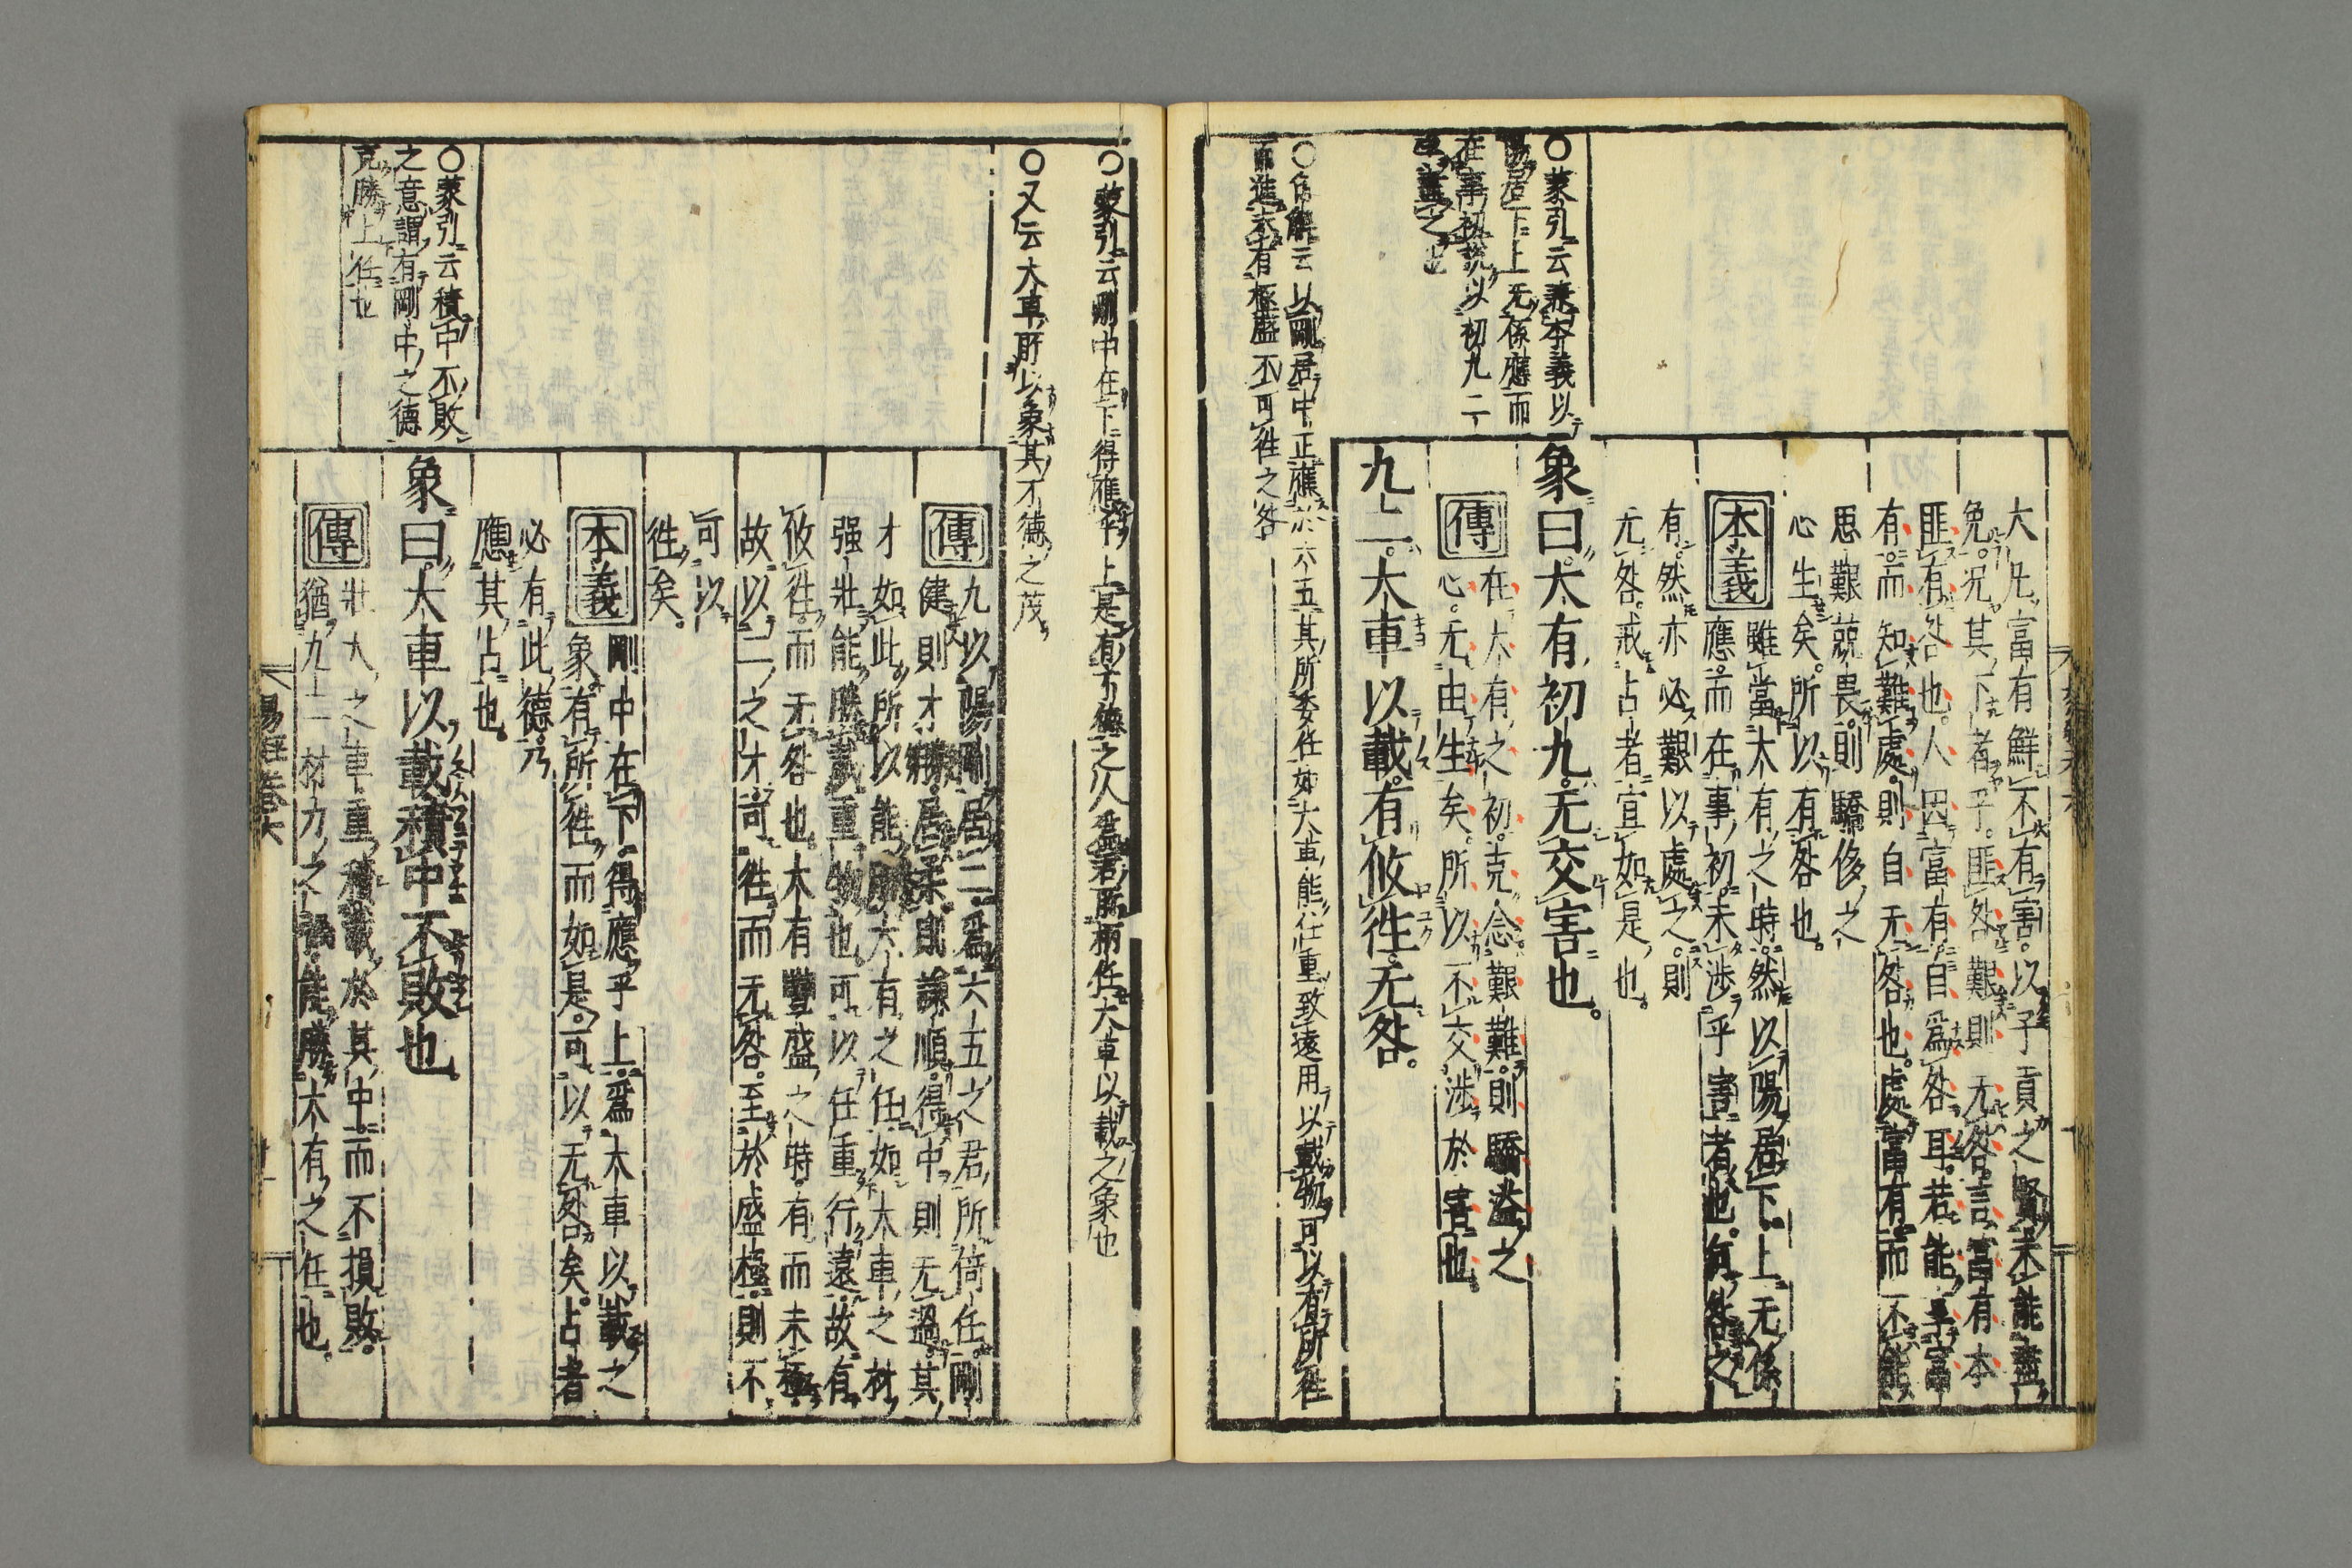 大凡富有鮮不有害以子貢之賢未能盡
免況其下者乎匪咎艱則无咎言富有本
匪有咎也人因富有自爲咎耳若能享富
有而知難處則自无咎也處富有而不能
思艱兢畏則驕侈之
心生矣所以有咎也
本義 雖當大有之時然以陽居下上无係
應而在事初未渉乎害者也何咎之
有然亦必艱以處之則
无咎戒占者宜如是也
〇蒙引云蓋本義以
陽居下上无係應而
在事初説以初九二
象曰大有初九无交害也
傳 在大有之初克念艱難則驕溢之
心无由生矣所以不交渉於害也
九二大車以載有攸徃无咎
〇 解云以剛居中正應於六五其所委任如大車能任重致遠用以載物可以有所徃
而進大有極盛不可徃之咎
〇蒙引云剛中在下得應乎上是有才德之人爲君所柄任大車以載之象也
〇又云大車所以象其才德之茂
傳 九以陽剛居二爲六五之君所倚任剛
健則才勝居柔則謙順得中則无過其
才如此所以能勝大有之任如大車之材
强壯能勝載重物也可以任重行遠故有
攸徃而无咎也大有豐盛之時有而未極
故以二之才可徃而无咎至於盛極則不
可以
徃矣
本義 剛中在下得應乎上爲大車以載之
象有所徃而如是可以无咎矣占者
必有此德乃
應其占也
〇蒙引云積中不敗
之意謂有剛中之德
克勝上任也
象曰大車以載積中不敗也
傳 壯大之車重積載於其中而不損敗
猶九二材力之强能勝大有之任也
易經卷六